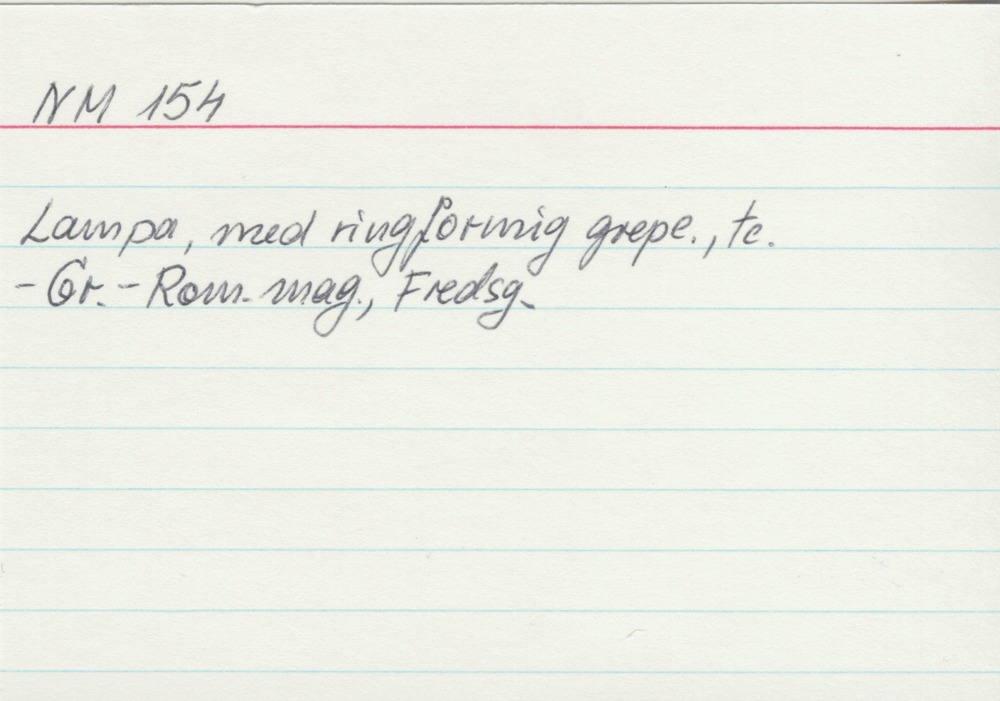 NM 154
Lampa, med ringformig grepe., tc.
- Gr. - Rom. mag., Fredsg.